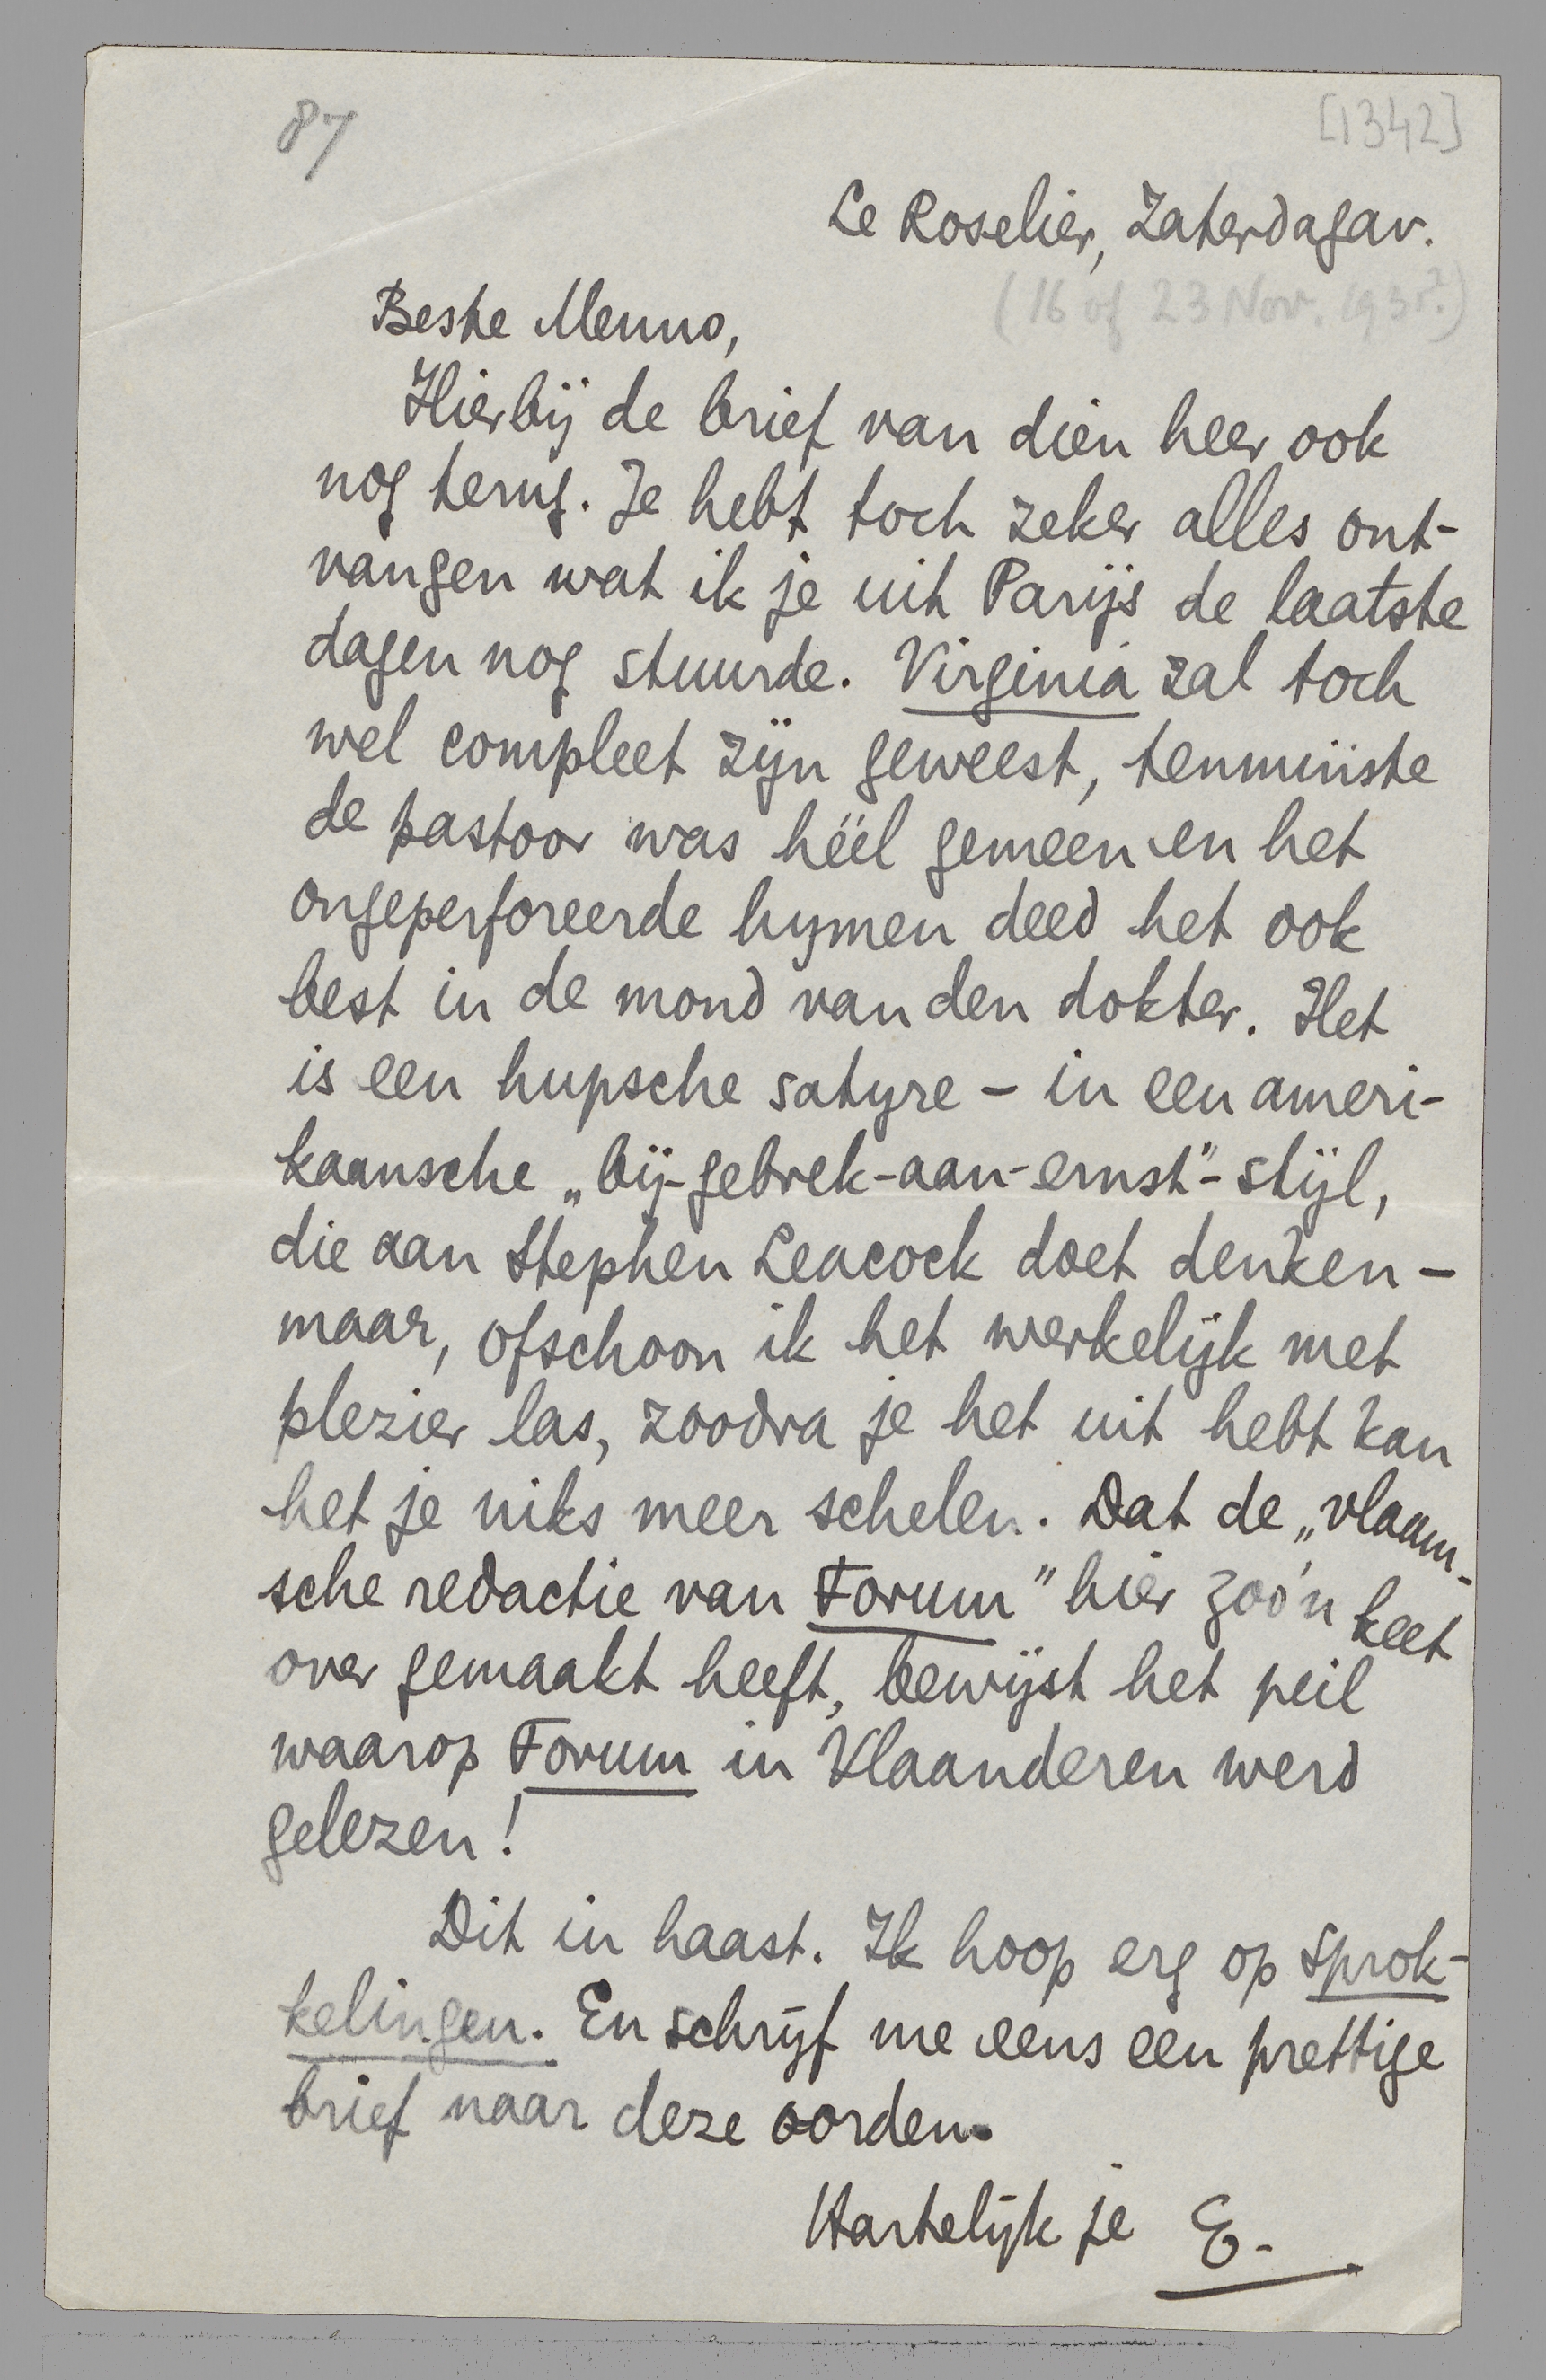 87
[1342]
Le Roselier, Zaterdagav.
(16 of 23 Nov. 1935?)
Beste Menno,
Hierbij de brief van dien heer ook
nog terug. Je hebt toch zeker alles ont-
vangen wat ik je uit Parijs de laatste
dagen nog stuurde. Virginia zal toch
wel compleet zijn geweest, tenminste
de pastoor was héél gemeen en het
ongeperforeerde hymen deed het ook
best in de mond van den dokter. Het
is een hupsche satyre – in een ameri-
kaansche „bij-gebrek-aan-ernst"-stijl,
die aan Stephen Leacock doet denken –
maar, ofschoon ik het werkelijk met
plezier las, zoodra je het uit hebt kan
het je niks meer schelen. Dat de „vlaam-
sche redactie van Forum" hier zoo'n keet
over gemaakt heeft, bewijst het peil
waarop Forum in Vlaanderen werd
gelezen!
Dit in haast. Ik hoop erg op Sprok-
kelingen. En schrijf me eens een prettige
brief naar deze oorden.
Hartelijk je E.